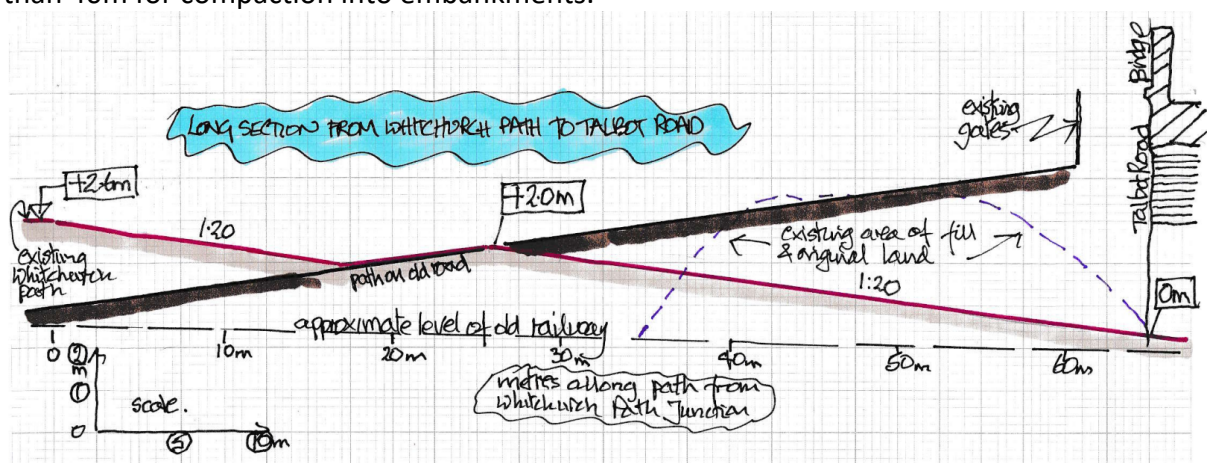 than 40m for compaction into embankments.
LONG SECTION FROM WHITCHURCH PATH TO TALBOT ROAD
existing
gates
Talbot Road Bridge
+2.6m
+2.0m
1:20
existing
Whitchurch
path
path on old road
existing area of fill
& original land
1:20
0m
approximate level of old railway
0
10m
20m
30m
40m
50m
60m
2
m
1
0
scale.
5
10m
metres along path from
Whitchurch Path Junction